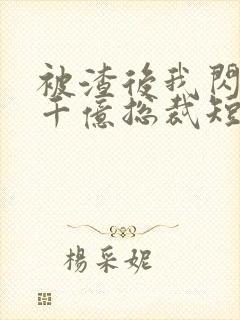 被渣後我閃
千億總裁短
楊采妮